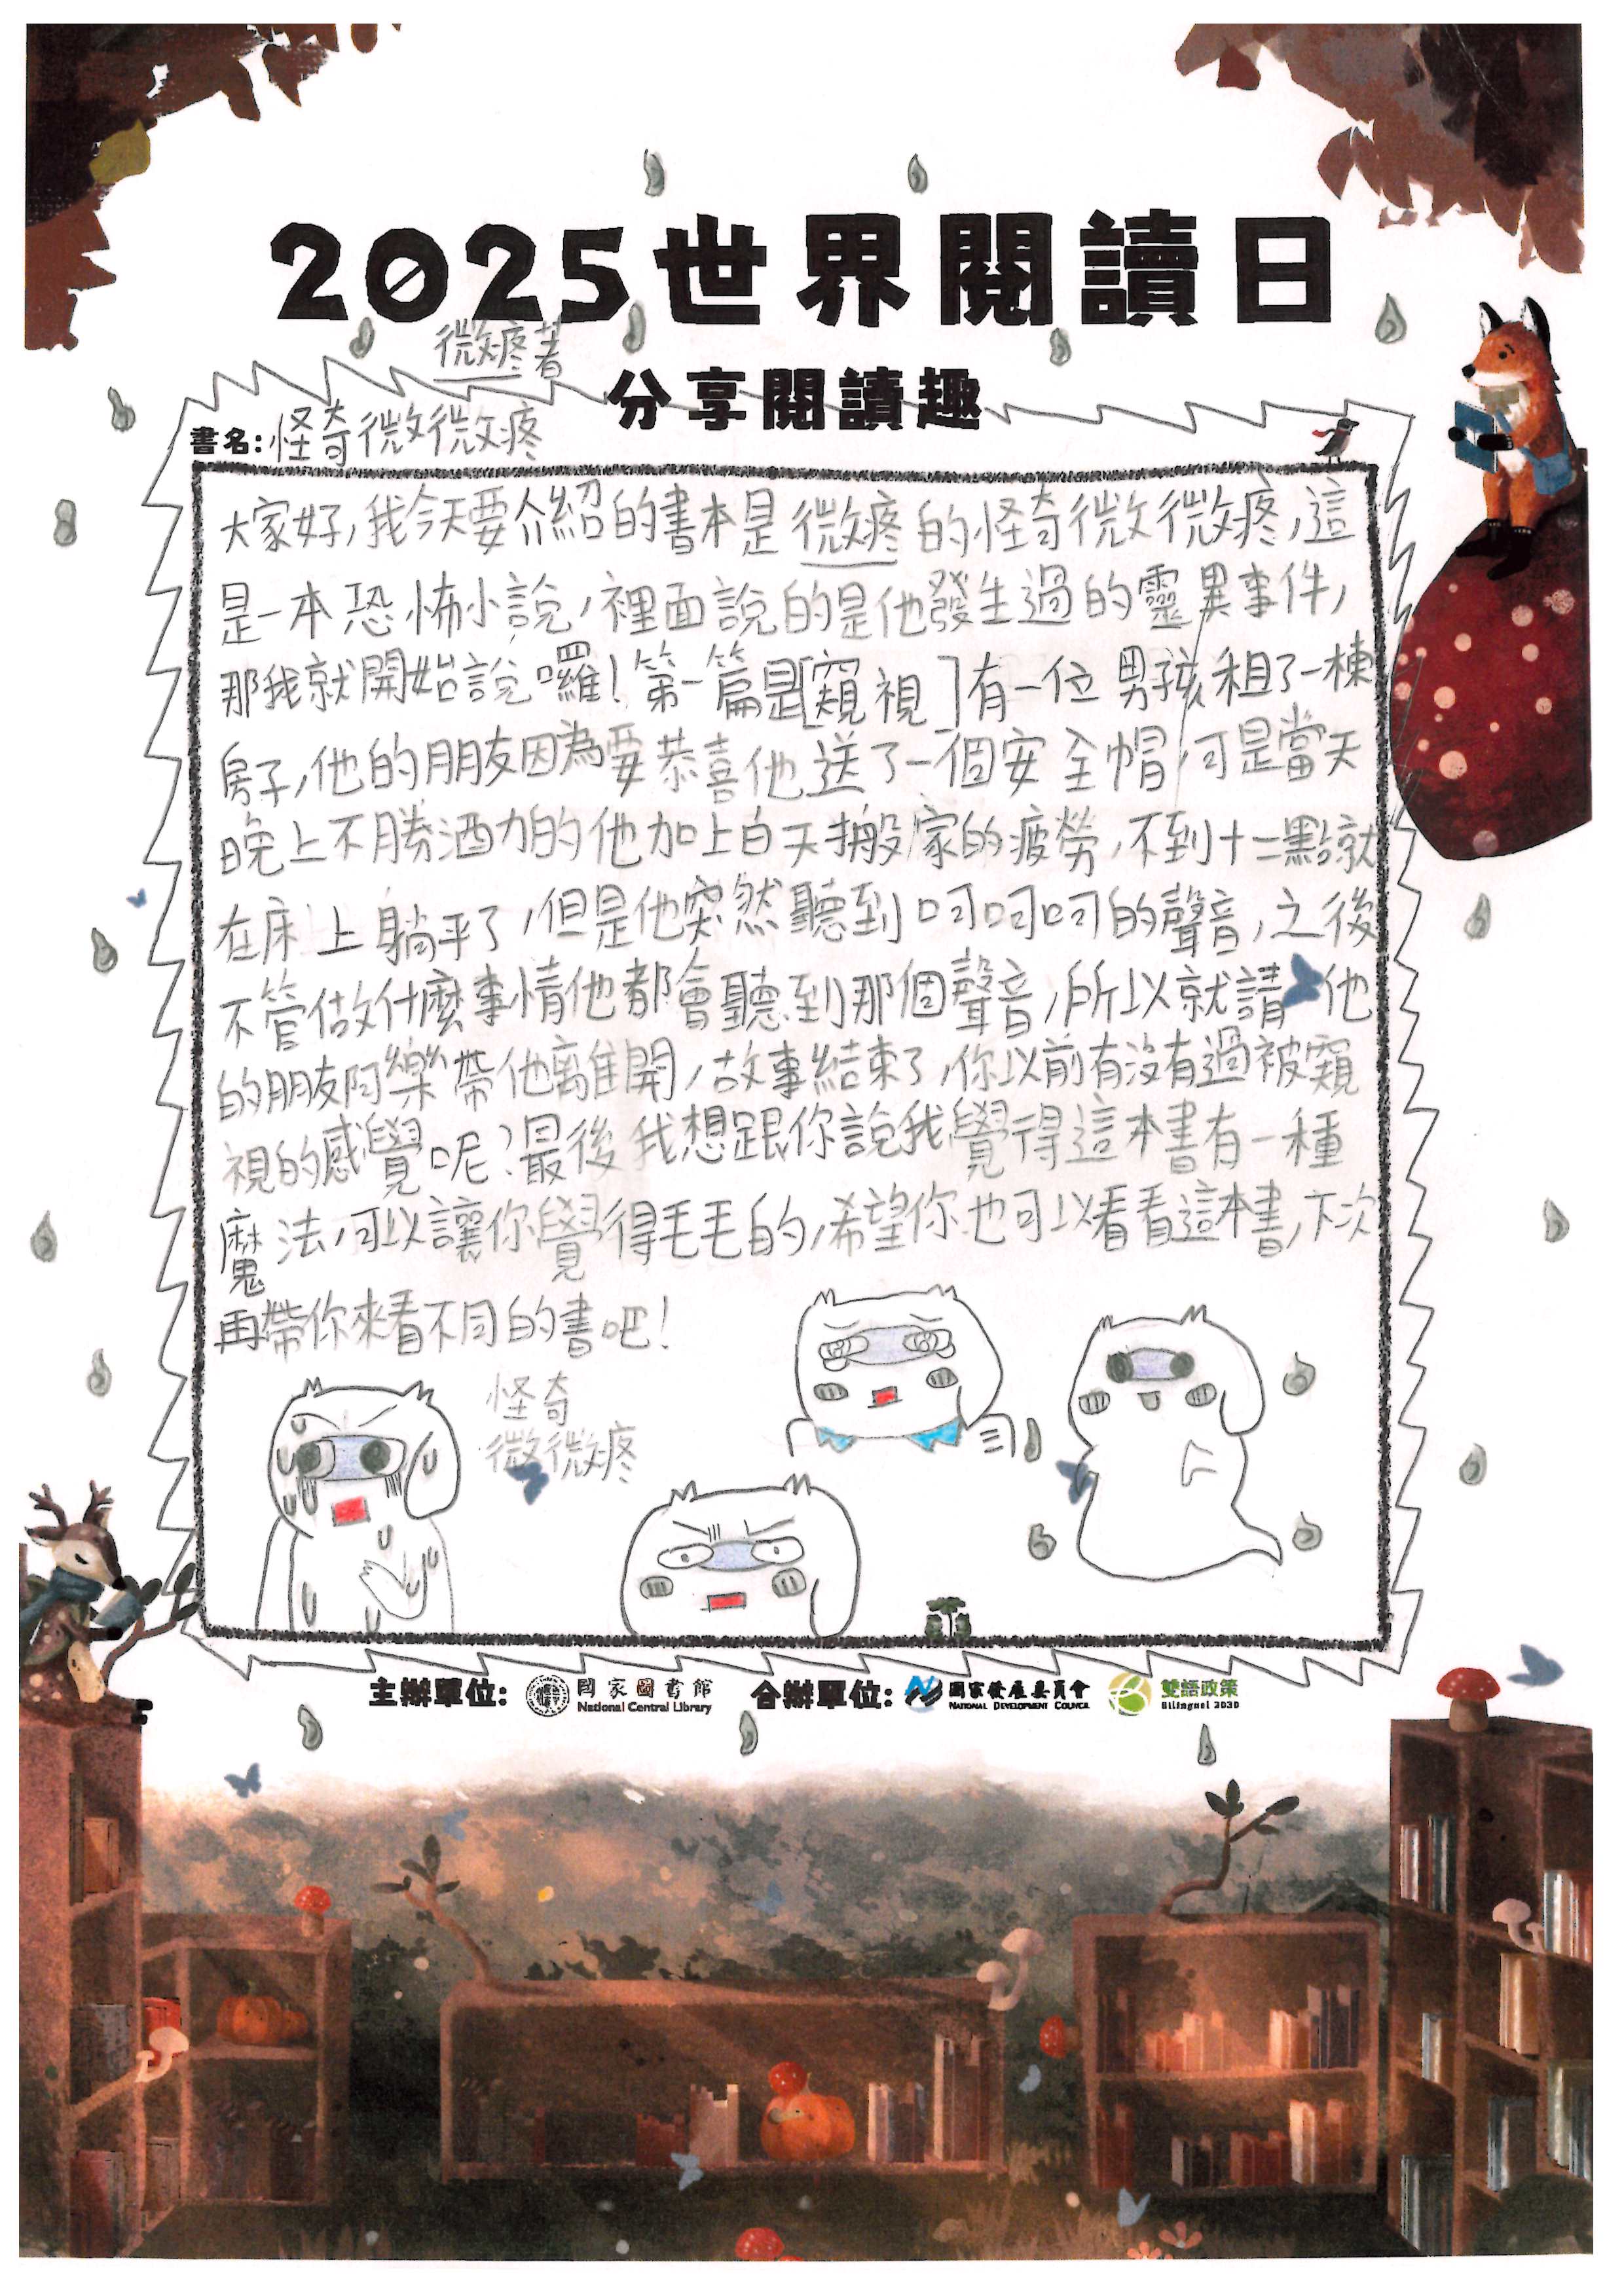 2025世界閱讀日
微疼著
分享閱讀趣
書名:怪奇微微疼
大家好,我今天要介紹的書本是微疼的怪奇微微疼,這
是一本恐怖小說,裡面說的是他發生過的靈異事件,
那我就開始說囉!第一篇是[窺視]有一位男孩租了一棟
房子,他的朋友因為要恭喜他送了一個安全帽,可是當天
晚上不勝酒力的他加上白天搬家的疲勞,不到十二點就
在床上躺平了,但是他突然聽到呵呵呵的聲音,之後
不管做什麼事情他都會聽到那個聲音,所以就請他
的朋友阿樂帶他離開,故事結束了,你以前有沒有過被窺
視的感覺呢?最後我想跟你說我覺得這本書有一種
魔法,可以讓你覺得毛毛的,希望你也可以看看這本書,下次
再帶你來看不同的書吧!
怪奇
微微疼
主辦單位: 國家圖書館 National Central Library 合辦單位: 國家發展委員會 National Development Council 雙語政策 Bilingual 2030